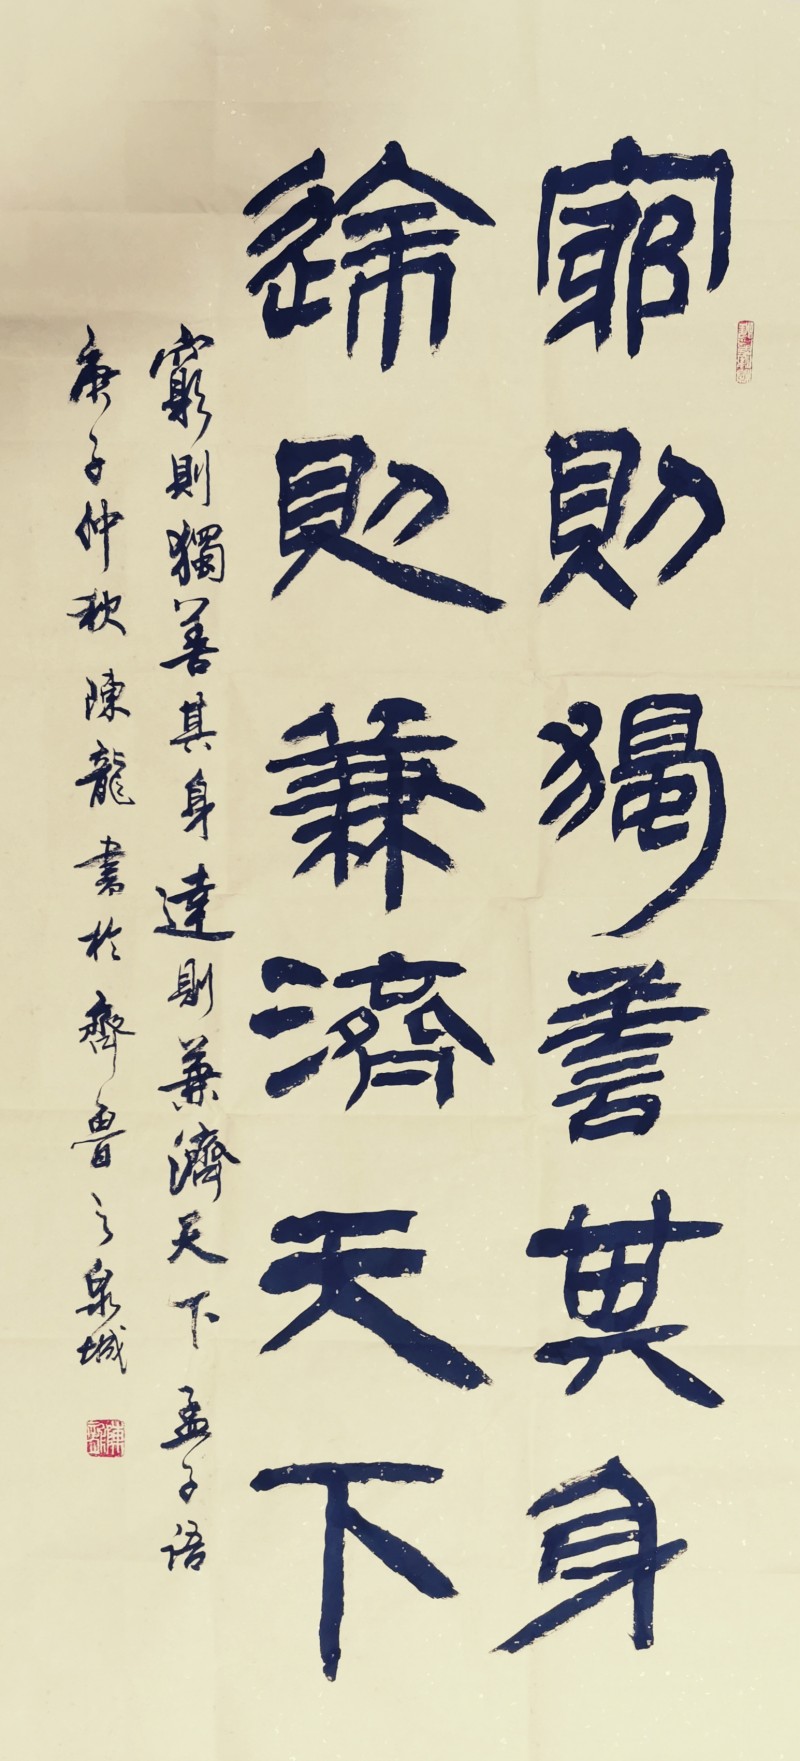 窮則獨善其身
達則兼濟天下
窮則獨善其身達則兼濟天下孟子語
庚子仲秋陳龍書於齊魯之泉城